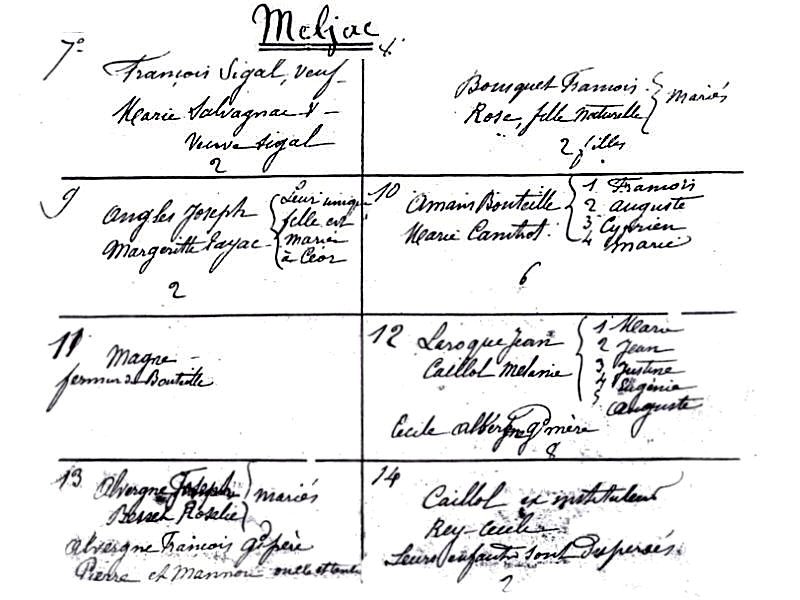 Meljac
7°
François Sigal, veuf
Marie Salvagnac &
Veuve Sigal
2
8.
Bousquet François
Rose, fille naturelle
Mariés
2 filles
9
Angles Joseph
Margeritte
Leur unique
fille est
mariée
à Céor
2
10
Amans Bouteille
Marie Canitrot.
1 François
2 Auguste
3 Cyprien
4 Marie
6
11
Magne
fermier de Bouteille
12
Laroque Jean
Caillol Melanie
1 Marie
2 Jean
3 Justine
4 Eugénie
5 Auguste
Cecile gd mère
8
13
Alvergne Joseph
Besset Roselie
mariés
Alvergne François gd père
Pierre et Mannon oncle et tante
14
Caillol ex instituteur
Rey Cecile
Leurs enfants sont dispersés.
2